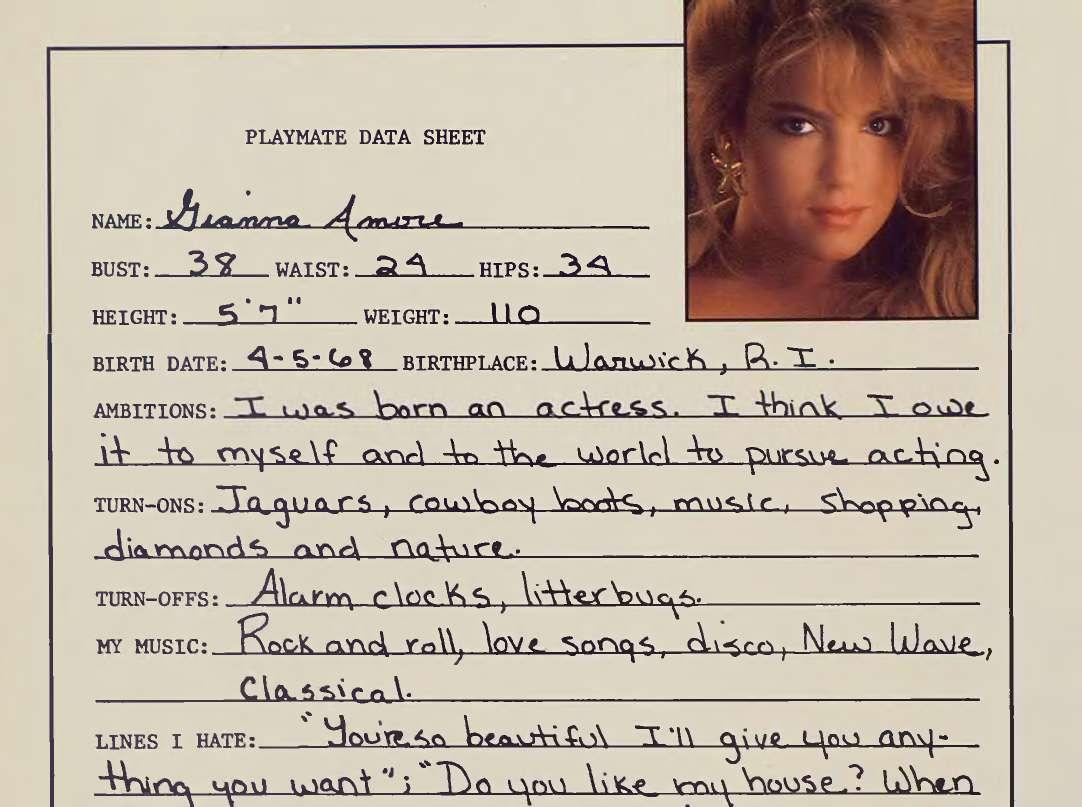 PLAYMATE DATA SHEET
NAME: Gianna Amore
BUST: 38 WAIST: 24 HIPS: 34
HEIGHT: 5'7" WEIGHT: 110
BIRTH DATE: 4-5-68 BIRTHPLACE: Warwick, R.I.
AMBITIONS: I was born an actress. I think I owe
it to myself and to the world to pursue acting.
TURN-ONS: Jaguars, cowboy boots, music, shopping,
diamonds and nature.
TURN-OFFS: Alarm clocks, litterbugs.
MY MUSIC: Rock and roll, love songs, disco, New Wave,
Classical.
LINES I HATE: "You're so beautiful I'll give you any-
thing you want"; "Do you like my house? When